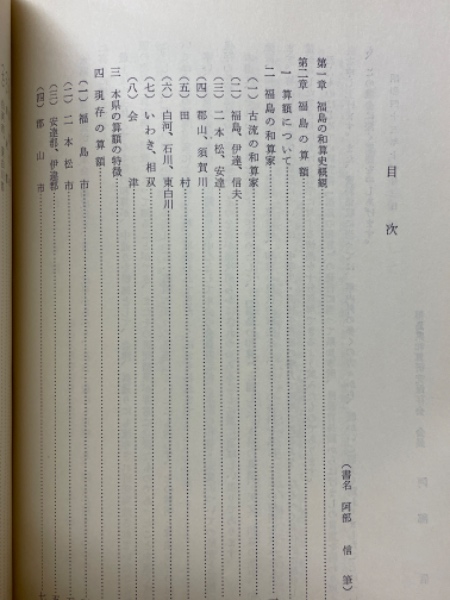 目次
第一章 福島の和算史概観
第二章 福島の算額
一 算額について
二 福島の和算家
（一）古流の和算家
（二）福島、伊達、信夫
（三）二本松、安達
（四）郡山、須賀川
（五）田村
（六）白河、石川、東白川
（七）いわき、相双
（八）会津
三 本県の算額の特徴
四 現存の算額
（一）福島市
（二）二本松市
（三）安達郡、伊達郡
（四）郡山市
（書名 阿部 信 筆）